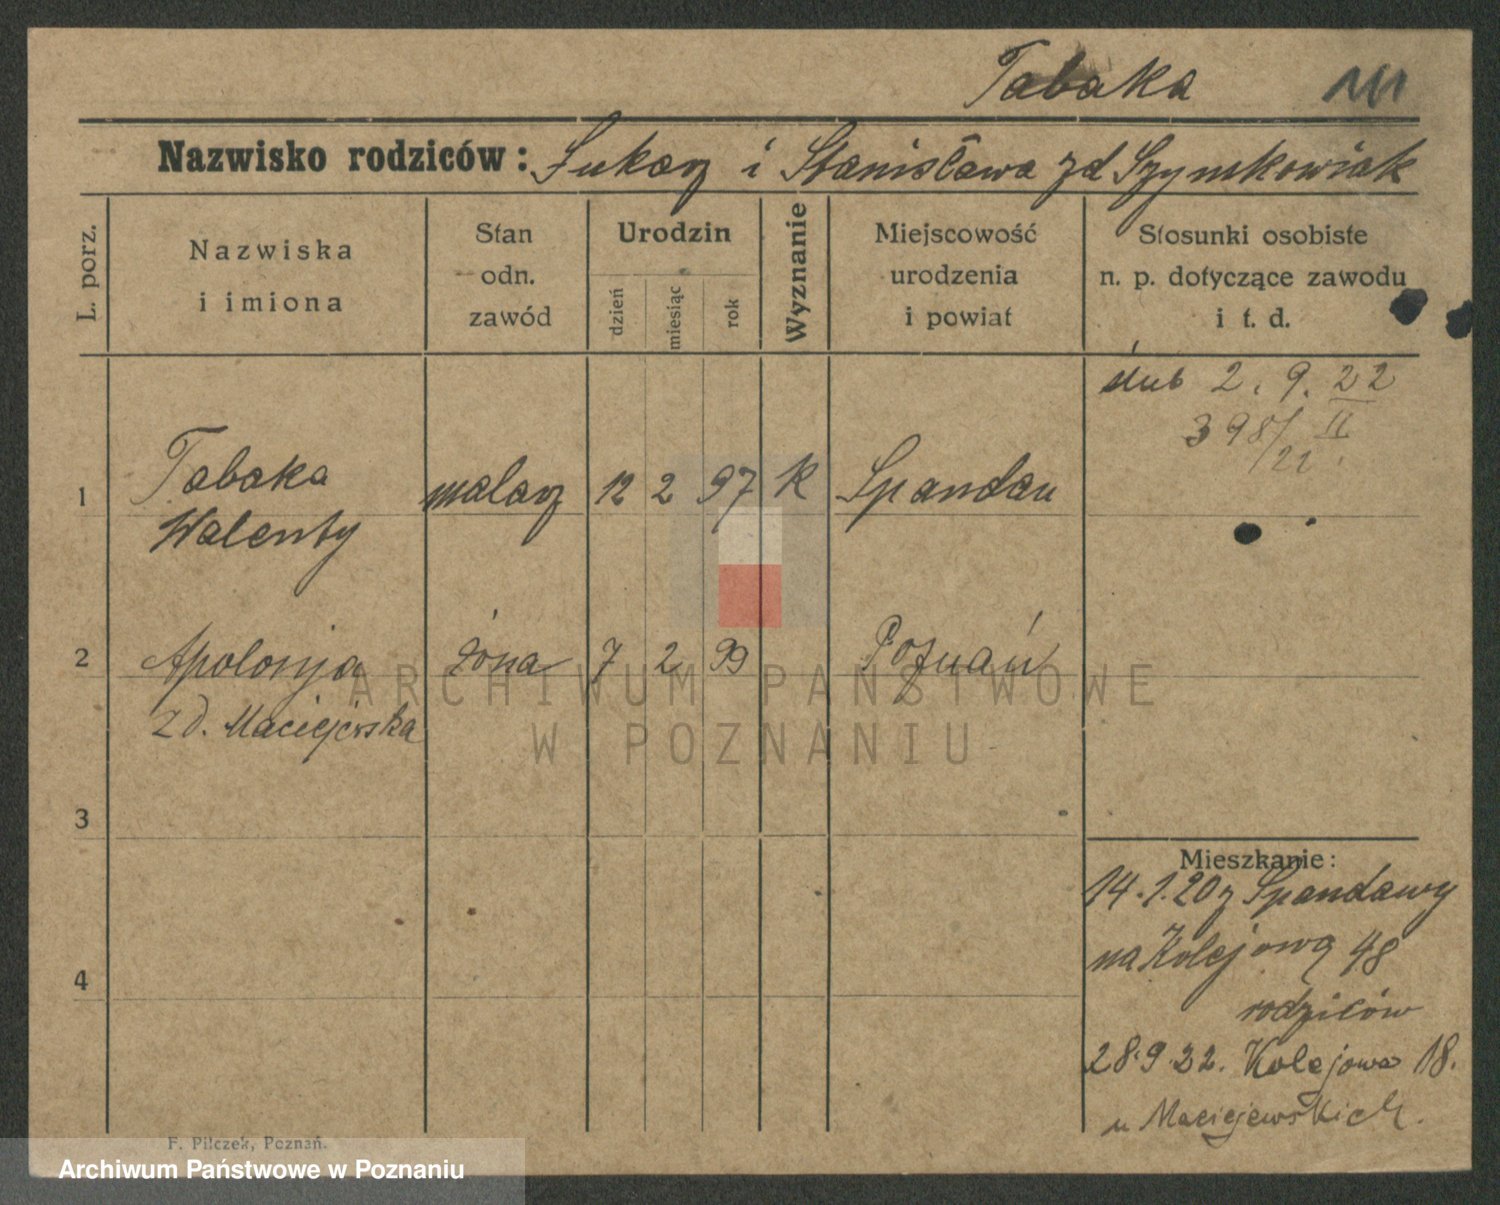 Tabaka
Nazwisko rodziców: Łukasz i Stanisława zd Szymkowiak
L. porz.
Nazwiska i imiona
Stan odn. zawód
Urodzin
dzień
miesiąc
rok
Wyznanie
Miejscowość urodzenia i powiat
Stosunki osobiste n. p. dotyczące zawodu i t. d.
ślub 2. 9. 22
398/22 II
1 Tabaka malarz 12 2 97 k Spandau
Walenty
2 Apolonja żona 7 2 99 Poznań
zd. Maciejewska
3
4
Mieszkanie:
14.1.20 z Spandawy
na Kolejową 48
rodziców
28.9.22. Kolejowa 18.
u Maciejewskich.
F. Pilczek, Poznań.
ARCHIWUM PAŃSTWOWE
W POZNANIU
Archiwum Państwowe w Poznaniu